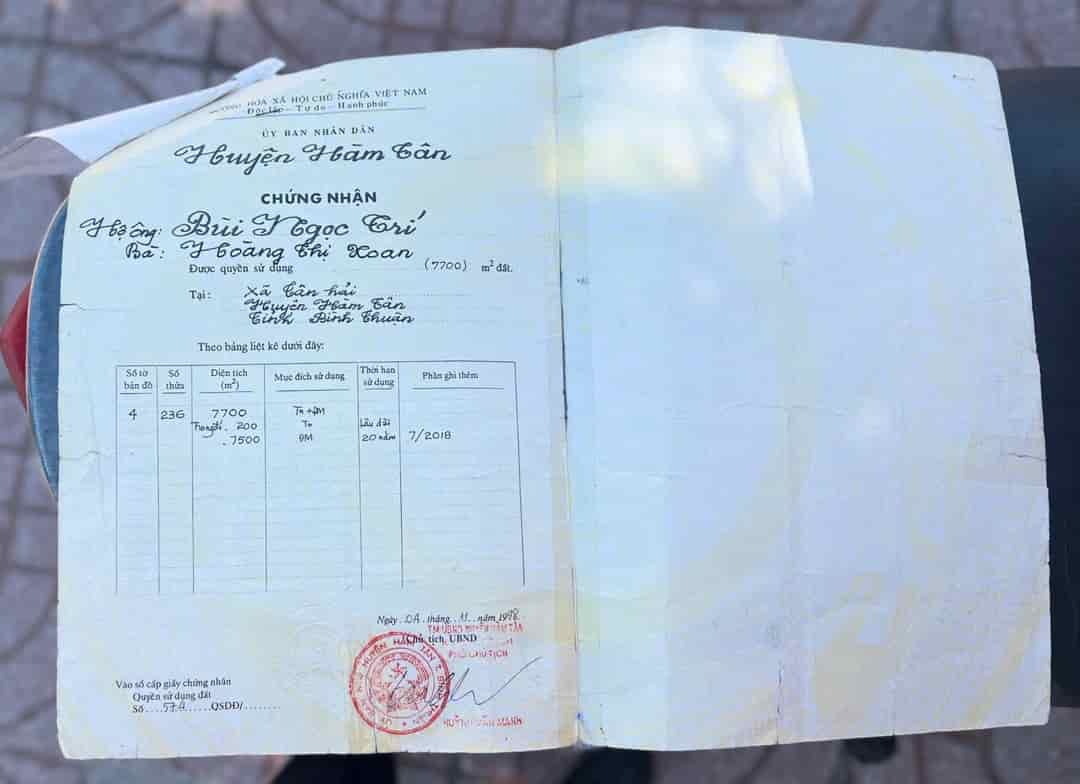 CỘNG HÒA XÃ HỘI CHỦ NGHĨA VIỆT NAM
Độc lập - Tự do - Hạnh phúc
ỦY BAN NHÂN DÂN
Huyện Hàm Tân
CHỨNG NHẬN
Hộ ông: Bùi Ngọc Trí
Bà: Hoàng Thị Xoan
Được quyền sử dụng (7700) m² đất.
Tại: Xã Tân hải
Huyện Hàm Tân
Tỉnh Bình Thuận
Theo bảng liệt kê dưới đây:
Số tờ bản đồ Số thửa Diện tích (m²) Mục đích sử dụng Thời hạn sử dụng Phần ghi thêm
4 236 7700
Trong đó. 200 Lâu dài
. 7500 ĐM 20 năm 7/2018
Ngày tháng 11 năm 1998
TM.UBND HUYỆN HÀM TÂN
Chủ tịch, UBND
PHÓ CHỦ TỊCH
HUỲNH VĂN MẠNH
Vào sổ cấp giấy chứng nhận
Quyền sử dụng đất
Số QSDĐ/